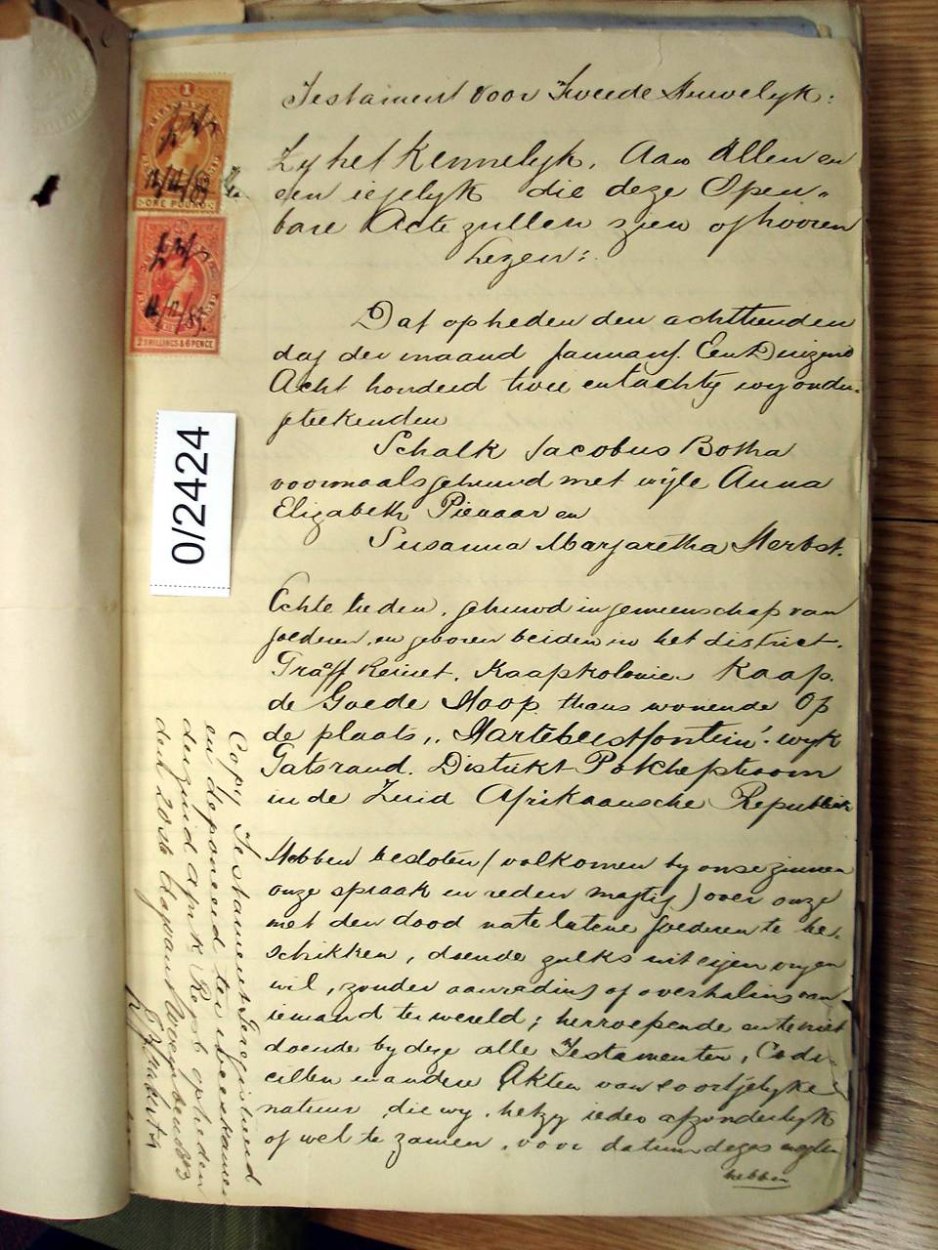 Testament voor Tweede Huwelyk.
Zy het Kennelyk, Aan Allen en
een iegelyk die deze Open-
bare Acte zullen zien of hooren
Lezen:
Dat op heden den achttienden
dag der maand January. Een Duizend
Acht honderd twee en tachtig wy onder-
geteekenden
Schalk Jacobus Botha
voormaals gehuwd met wyle Anna
Elizabeth Pienaar en
Susanna Margaretha Herbst.
Echte lieden, gehuwd in gemeenschap van
goederen, en geboren beiden in het district.
Graff Reinet, Kaapkolonie. Kaap
de Goede Hoop. thans wonende Op
de plaats ,, Hartebeestfontein" wyk
Gatsrand. Distrikt Potchefstroom
in de Zuid Afrikaansche Republiek
Hebben besloten (volkomen by onse zinnen
onze spraak en reden magtig) over onze
met den dood nate latene goederen te be-
schikken, doende zulks uit eigen vryen
wil, zonder aanrading of overhaling van
iemand ter wereld; herroepende en te niet
doende by deze alle Testamenten, Codi-
cillen en andere Akten van soortgelyke
natuur die wy, hetzy ieder afzonderlyk
of wel te zamen, voor datum dezes mogten
hebben
Copy Testament Geregistreerd
en deponeerd ter Weeskamer
der Zuid Afrik Repb op heden
den 20ste dag van November 1883
1
ONE POUND
12/12/83
2 SHILLINGS & 6 PENCE
12/12/83.
0/24424